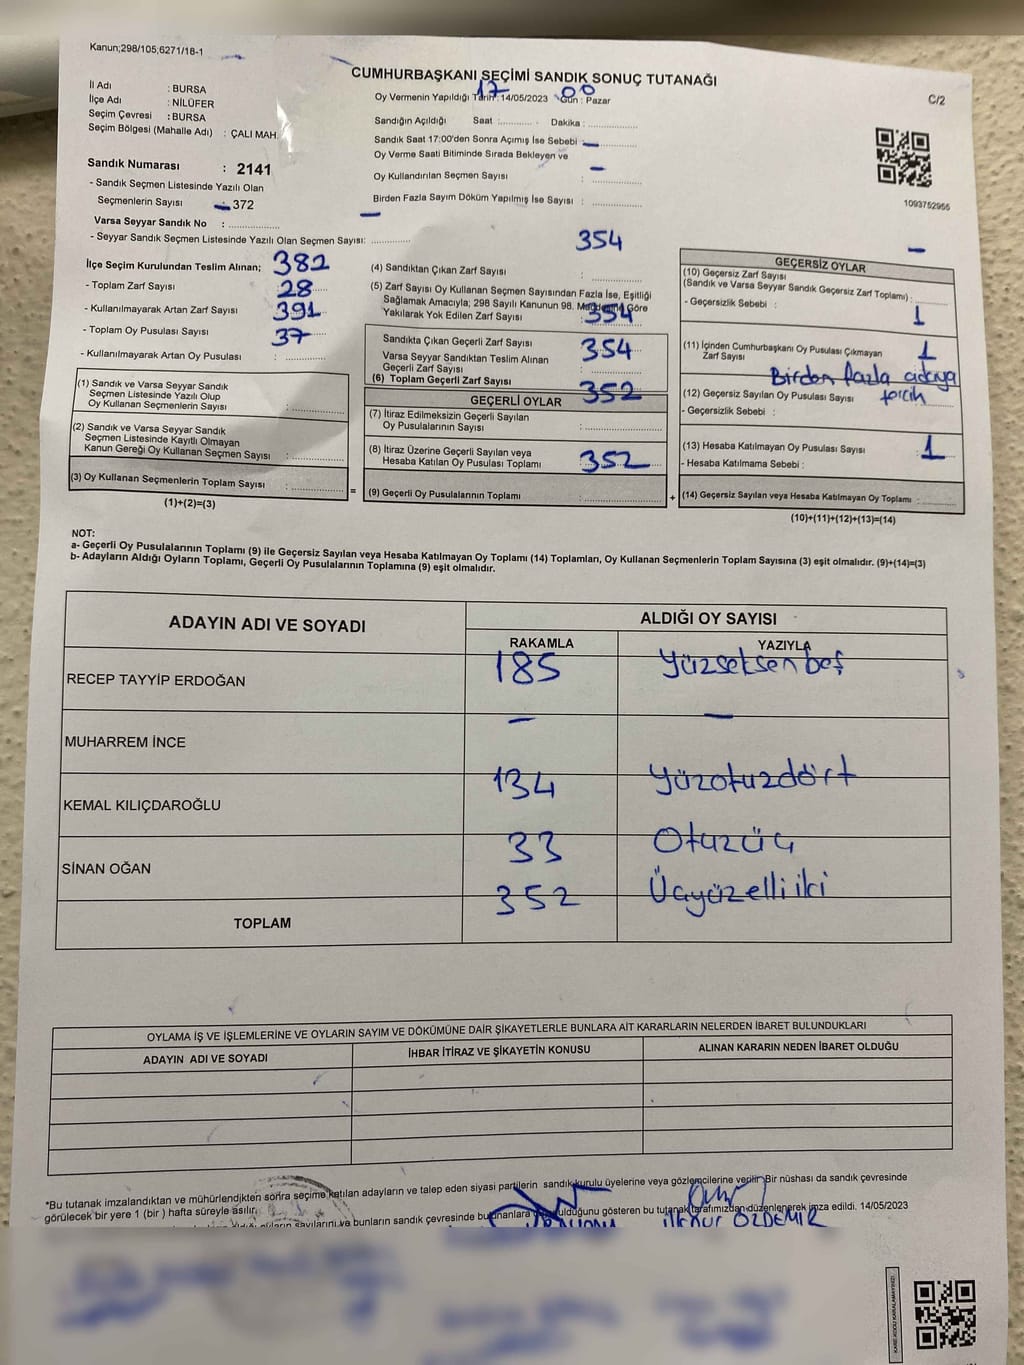 Kanun;298/105,6271/18-1
CUMHURBAŞKANI SEÇİMİ SANDIK SONUÇ TUTANAĞI
C/2
İl Adı : BURSA
İlçe Adı : NİLÜFER
Seçim Çevresi : BURSA
Seçim Bölgesi (Mahalle Adı) : ÇALI MAH.
Sandık Numarası : 2141
- Sandık Seçmen Listesinde Yazılı Olan
Seçmenlerin Sayısı : 372
Varsa Seyyar Sandık No :
- Seyyar Sandık Seçmen Listesinde Yazılı Olan Seçmen Sayısı:
Oy Vermenin Yapıldığı Tarih: 14/05/2023 Gün : Pazar
17 00
Sandığın Açıldığı Saat : Dakika :
Sandık Saat 17:00'den Sonra Açımış İse Sebebi : -
Oy Verme Saati Bitiminde Sırada Bekleyen ve
Oy Kullandırılan Seçmen Sayısı : -
Birden Fazla Sayım Döküm Yapılmış İse Sayısı : -
1093752955
İlçe Seçim Kurulundan Teslim Alınan; 382
- Toplam Zarf Sayısı : 28
- Kullanılmayarak Artan Zarf Sayısı : 391
- Toplam Oy Pusulası Sayısı : 37
- Kullanılmayarak Artan Oy Pusulası :
(1) Sandık ve Varsa Seyyar Sandık
Seçmen Listesinde Yazılı Olup
Oy Kullanan Seçmenlerin Sayısı :
(2) Sandık ve Varsa Seyyar Sandık
Seçmen Listesinde Kayıtlı Olmayan
Kanun Gereği Oy Kullanan Seçmen Sayısı :
(3) Oy Kullanan Seçmenlerin Toplam Sayısı :
(1)+(2)=(3)
354
(4) Sandıktan Çıkan Zarf Sayısı :
(5) Zarf Sayısı Oy Kullanan Seçmen Sayısından Fazla İse, Eşitliği
Sağlamak Amacıyla; 298 Sayılı Kanunun 98. Maddesine Göre
Yakılarak Yok Edilen Zarf Sayısı : 354
Sandıkta Çıkan Geçerli Zarf Sayısı : 354
Varsa Seyyar Sandıktan Teslim Alınan
Geçerli Zarf Sayısı :
(6) Toplam Geçerli Zarf Sayısı : 352
GEÇERLİ OYLAR
(7) İtiraz Edilmeksizin Geçerli Sayılan
Oy Pusulalarının Sayısı :
(8) İtiraz Üzerine Geçerli Sayılan veya
Hesaba Katılan Oy Pusulası Toplamı : 352
= (9) Geçerli Oy Pusulalarının Toplamı :
-
GEÇERSİZ OYLAR
(10) Geçersiz Zarf Sayısı
(Sandık ve Varsa Seyyar Sandık Geçersiz Zarf Toplamı) :
- Geçersizlik Sebebi : 1
(11) İçinden Cumhurbaşkanı Oy Pusulası Çıkmayan 1
Zarf Sayısı
Birden fazla adaya
tercih
(12) Geçersiz Sayılan Oy Pusulası Sayısı
- Geçersizlik Sebebi :
(13) Hesaba Katılmayan Oy Pusulası Sayısı : 1
- Hesaba Katılmama Sebebi :
+ (14) Geçersiz Sayılan veya Hesaba Katılmayan Oy Toplamı :
(10)+(11)+(12)+(13)=(14)
NOT:
a- Geçerli Oy Pusulalarının Toplamı (9) ile Geçersiz Sayılan veya Hesaba Katılmayan Oy Toplamı (14) Toplamları, Oy Kullanan Seçmenlerin Toplam Sayısına (3) eşit olmalıdır. (9)+(14)=(3)
b- Adayların Aldığı Oyların Toplamı, Geçerli Oy Pusulalarının Toplamına (9) eşit olmalıdır.
ADAYIN ADI VE SOYADI ALDIĞI OY SAYISI
RAKAMLA YAZIYLA
RECEP TAYYİP ERDOĞAN 185 Yüzseksenbeş
MUHARREM İNCE - -
KEMAL KILIÇDAROĞLU 134 Yüzotuzdört
SİNAN OĞAN 33 Otuzüç
TOPLAM 352 Üçyüzelliiki
OYLAMA İŞ VE İŞLEMLERİNE VE OYLARIN SAYIM VE DÖKÜMÜNE DAİR ŞİKAYETLERLE BUNLARA AİT KARARLARIN NELERDEN İBARET BULUNDUKLARI
ADAYIN ADI VE SOYADI İHBAR İTİRAZ VE ŞİKAYETİN KONUSU ALINAN KARARIN NEDEN İBARET OLDUĞU
*Bu tutanak imzalandıktan ve mühürlendikten sonra seçime katılan adayların ve talep eden siyasi partilerin sandık kurulu üyelerine veya gözlemcilerine verilir. Bir nüshası da sandık çevresinde
görülecek bir yere 1 (bir) hafta süreyle asılır.
sayılarını ve bunların sandık çevresinde bulunanlara olduğunu gösteren bu tutanak tarafımızdan düzenlenerek imza edildi. 14/05/2023
İlknur ÖZDEMİR